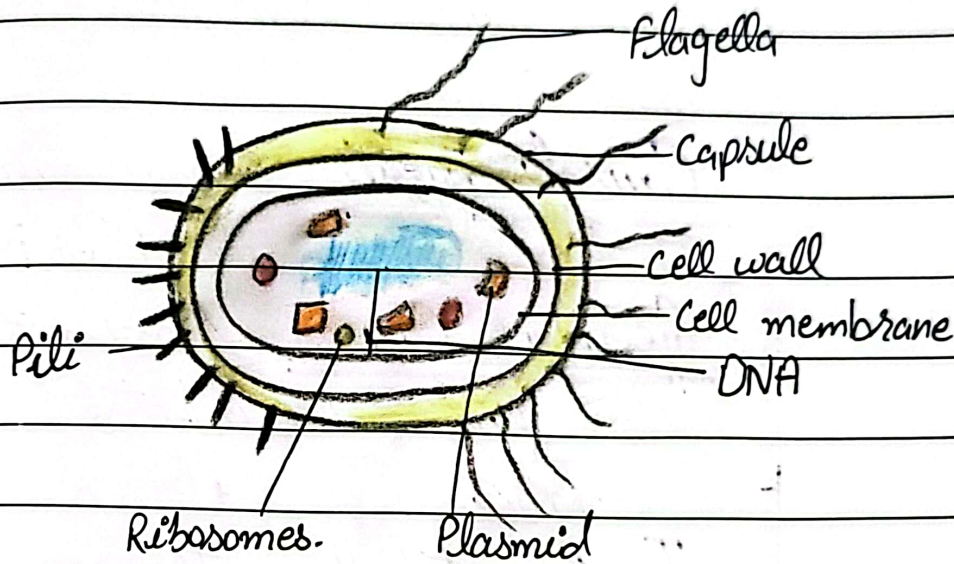 Flagella
Capsule
Cell wall
Cell membrane
Pili
DNA
Ribosomes.
Plasmid